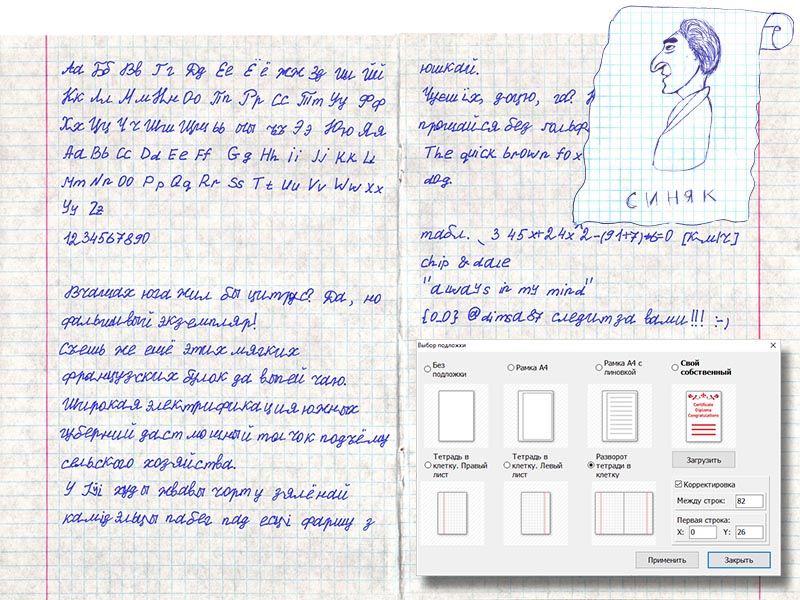 Аа Бб Вв Гг Дд Ее Ёё Жж Зз Ии Йй
Кк Лл Мм Нн Оо Пп Рр Сс Тт Уу Фф
Хх Цц Чч Шш Щщ ьь ыы ъъ Ээ Юю Яя
Aa Bb Cc Dd Ee Ff Gg Hh Ii Jj Kk Ll
Mm Nn Oo Pp Qq Rr Ss Tt Uu Vv Ww Xx
Yy Zz
1234567890
В чащах юга жил бы цитрус? Да, но
фальшивый экземпляр!
Съешь же ещё этих мягких
французских булок да выпей чаю.
Широкая электрификация южных
губерний даст мощный толчок подъёму
сельского хозяйства.
У Іўі худы жвавы чорт у зялёнай
камізэльцы пабег пад есці фаршу з
юшкай.
їх, доцю, га?
прощайся без гольф
The quick brown fox
dog.
СИНЯК
табл. 3 45x+24x^2-(91+7)+6=0 [км/ч]
chip & dale
"always in my mind"
{0_0} @dimsa87 следит за вами!!! :-)
Выбор подложки
Без подложки
Рамка А4
Рамка А4 с линовкой
Свой собственный
Certificate
Diploma
Congratulations
Тетрадь в клетку. Правый лист
Тетрадь в клетку. Левый лист
Разворот тетради в клетку
Загрузить
Корректировка
Между строк: 82
Первая строка:
X: 0 Y: 26
Применить
Закрыть